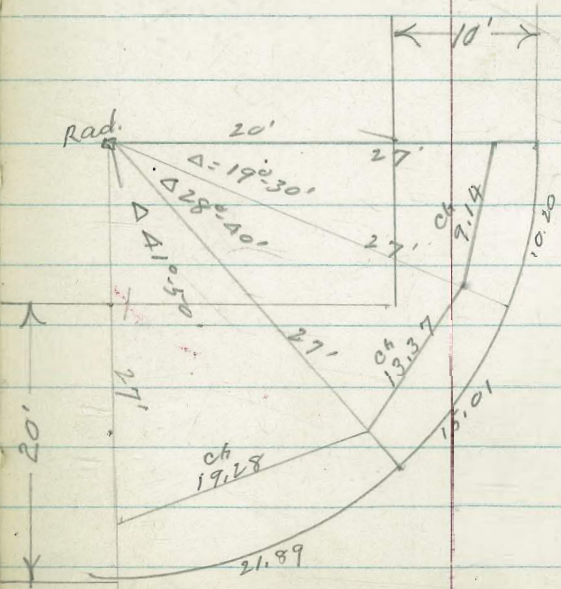 10'
Rad.
20'
27'
Δ = 19°-30'
Δ 28°-40'
Δ 41°-50'
27'
ch
9.14
10.20
27'
ch
13.37
15.01
27'
20'
ch
19.28
21.89